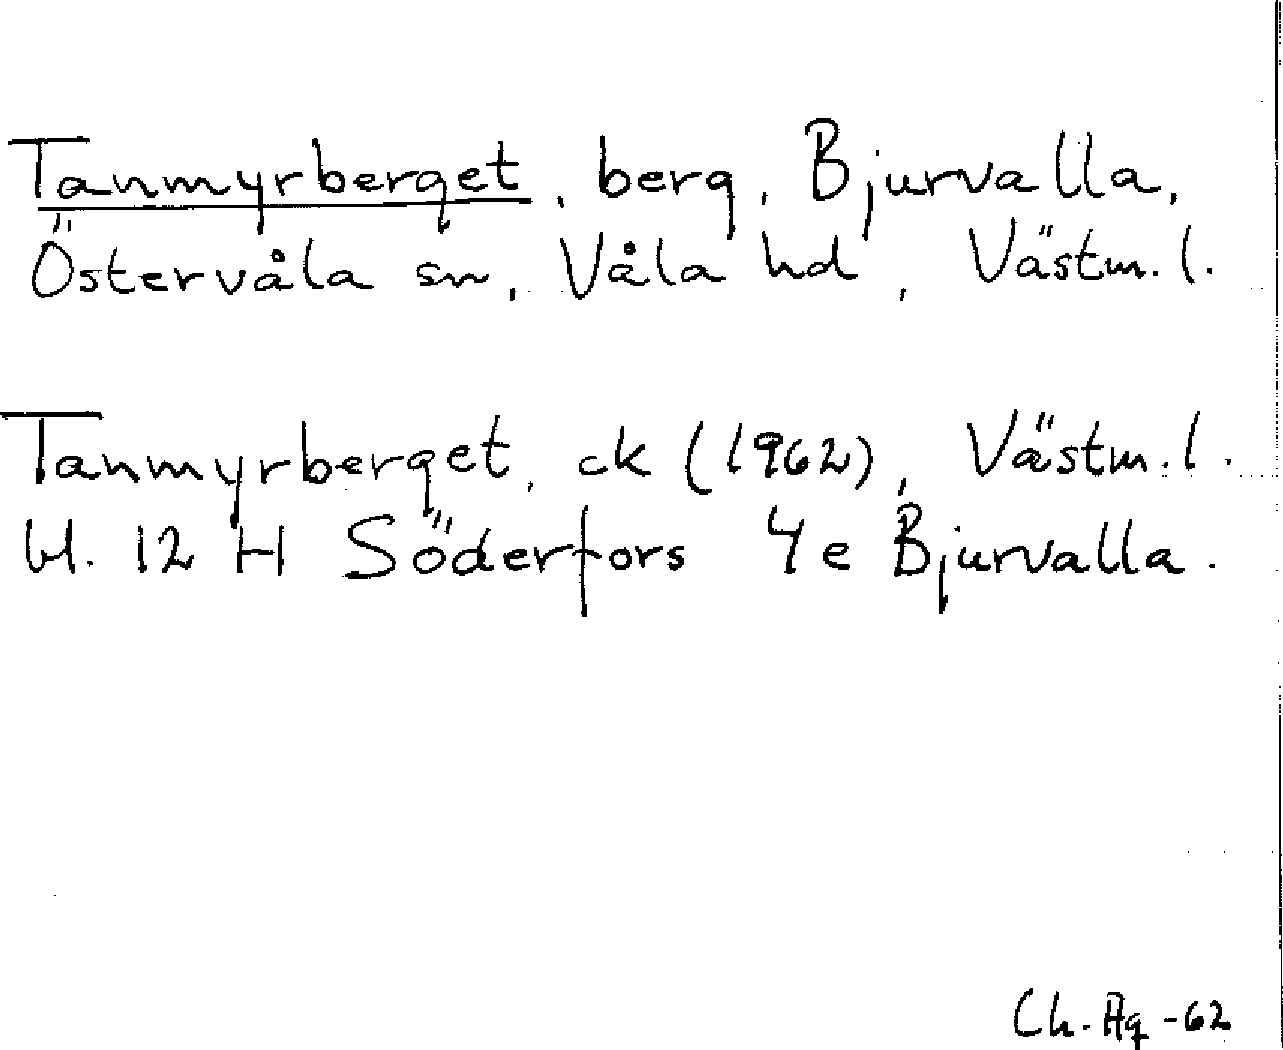 Tanmyrberget, berg, Bjurvalla,
Östervåla sn, Våla hd, Västm. l.
Tanmyrberget, ek (1962), Västm. l.
bl. 12 H Söderfors 4e Bjurvalla.
Ch. Ag -62